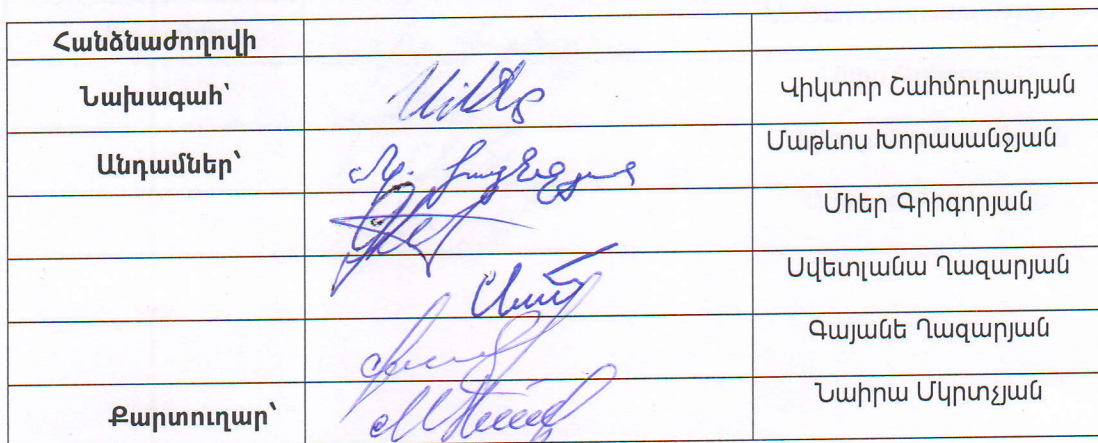 Հանձնաժողովի
Նախագահ՝ Վիկտոր Շահմուրադյան
Անդամներ՝ Մաթևոս Խորասանջյան
Մհեր Գրիգորյան
Սվետլանա Ղազարյան
Գայանե Ղազարյան
Քարտուղար՝ Նաիրա Մկրտչյան